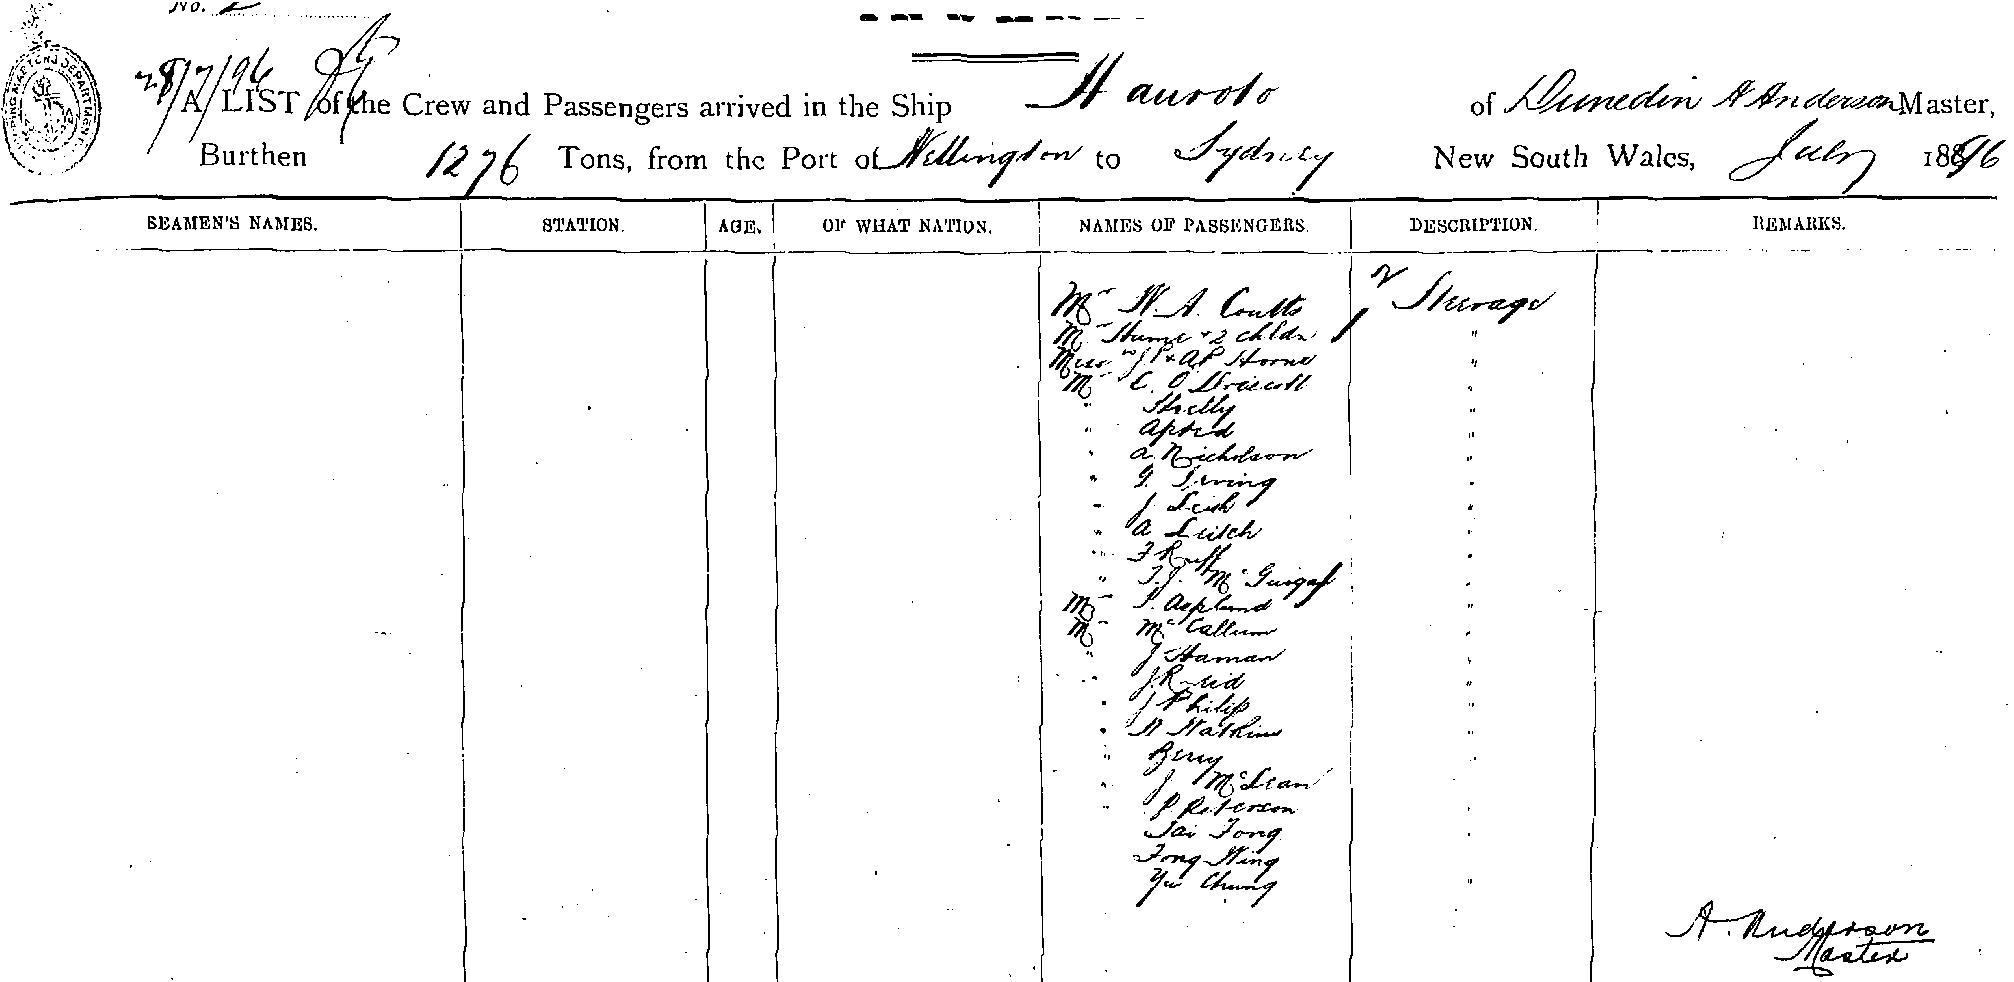 No. 2
28/7/96
A LIST of the Crew and Passengers arrived in the Ship Hauroto of Dunedin A Anderson Master,
Burthen 1276 Tons, from the Port of Wellington to Sydney New South Wales, July 1896
SEAMEN'S NAMES. STATION. AGE. OF WHAT NATION. NAMES OF PASSENGERS. DESCRIPTION. REMARKS.
Mr W. A. Coutts Steerage
Hume + 2 chldn "
J P & A P Horne "
Mr C. O'Driscoll "
" "
" "
" A Nicholson "
" G. Irving "
" J. "
" A Leitch "
" F "
" T. J. McGuigan "
Asplund "
Mr McCallum "
" J Haman "
" J. Reid "
" J Philip "
" W Watkins "
" Berry "
" J McLean "
" P Peterson "
Tai Fong "
Fong Wing "
Chung "
A. Anderson
Master